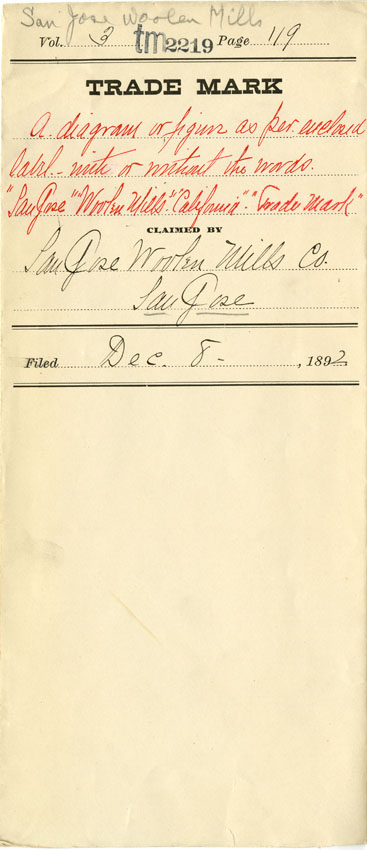 San Jose Woolen Mills
Vol. 3 tm2219 Page 119
TRADE MARK
A diagram or figure as per enclosed
label - with or without the words.
"San Jose" "Woolen Mills" "California" "Trade Mark"
CLAIMED BY
San Jose Woolen Mills Co.
San Jose
Filed Dec. 8 - , 1892